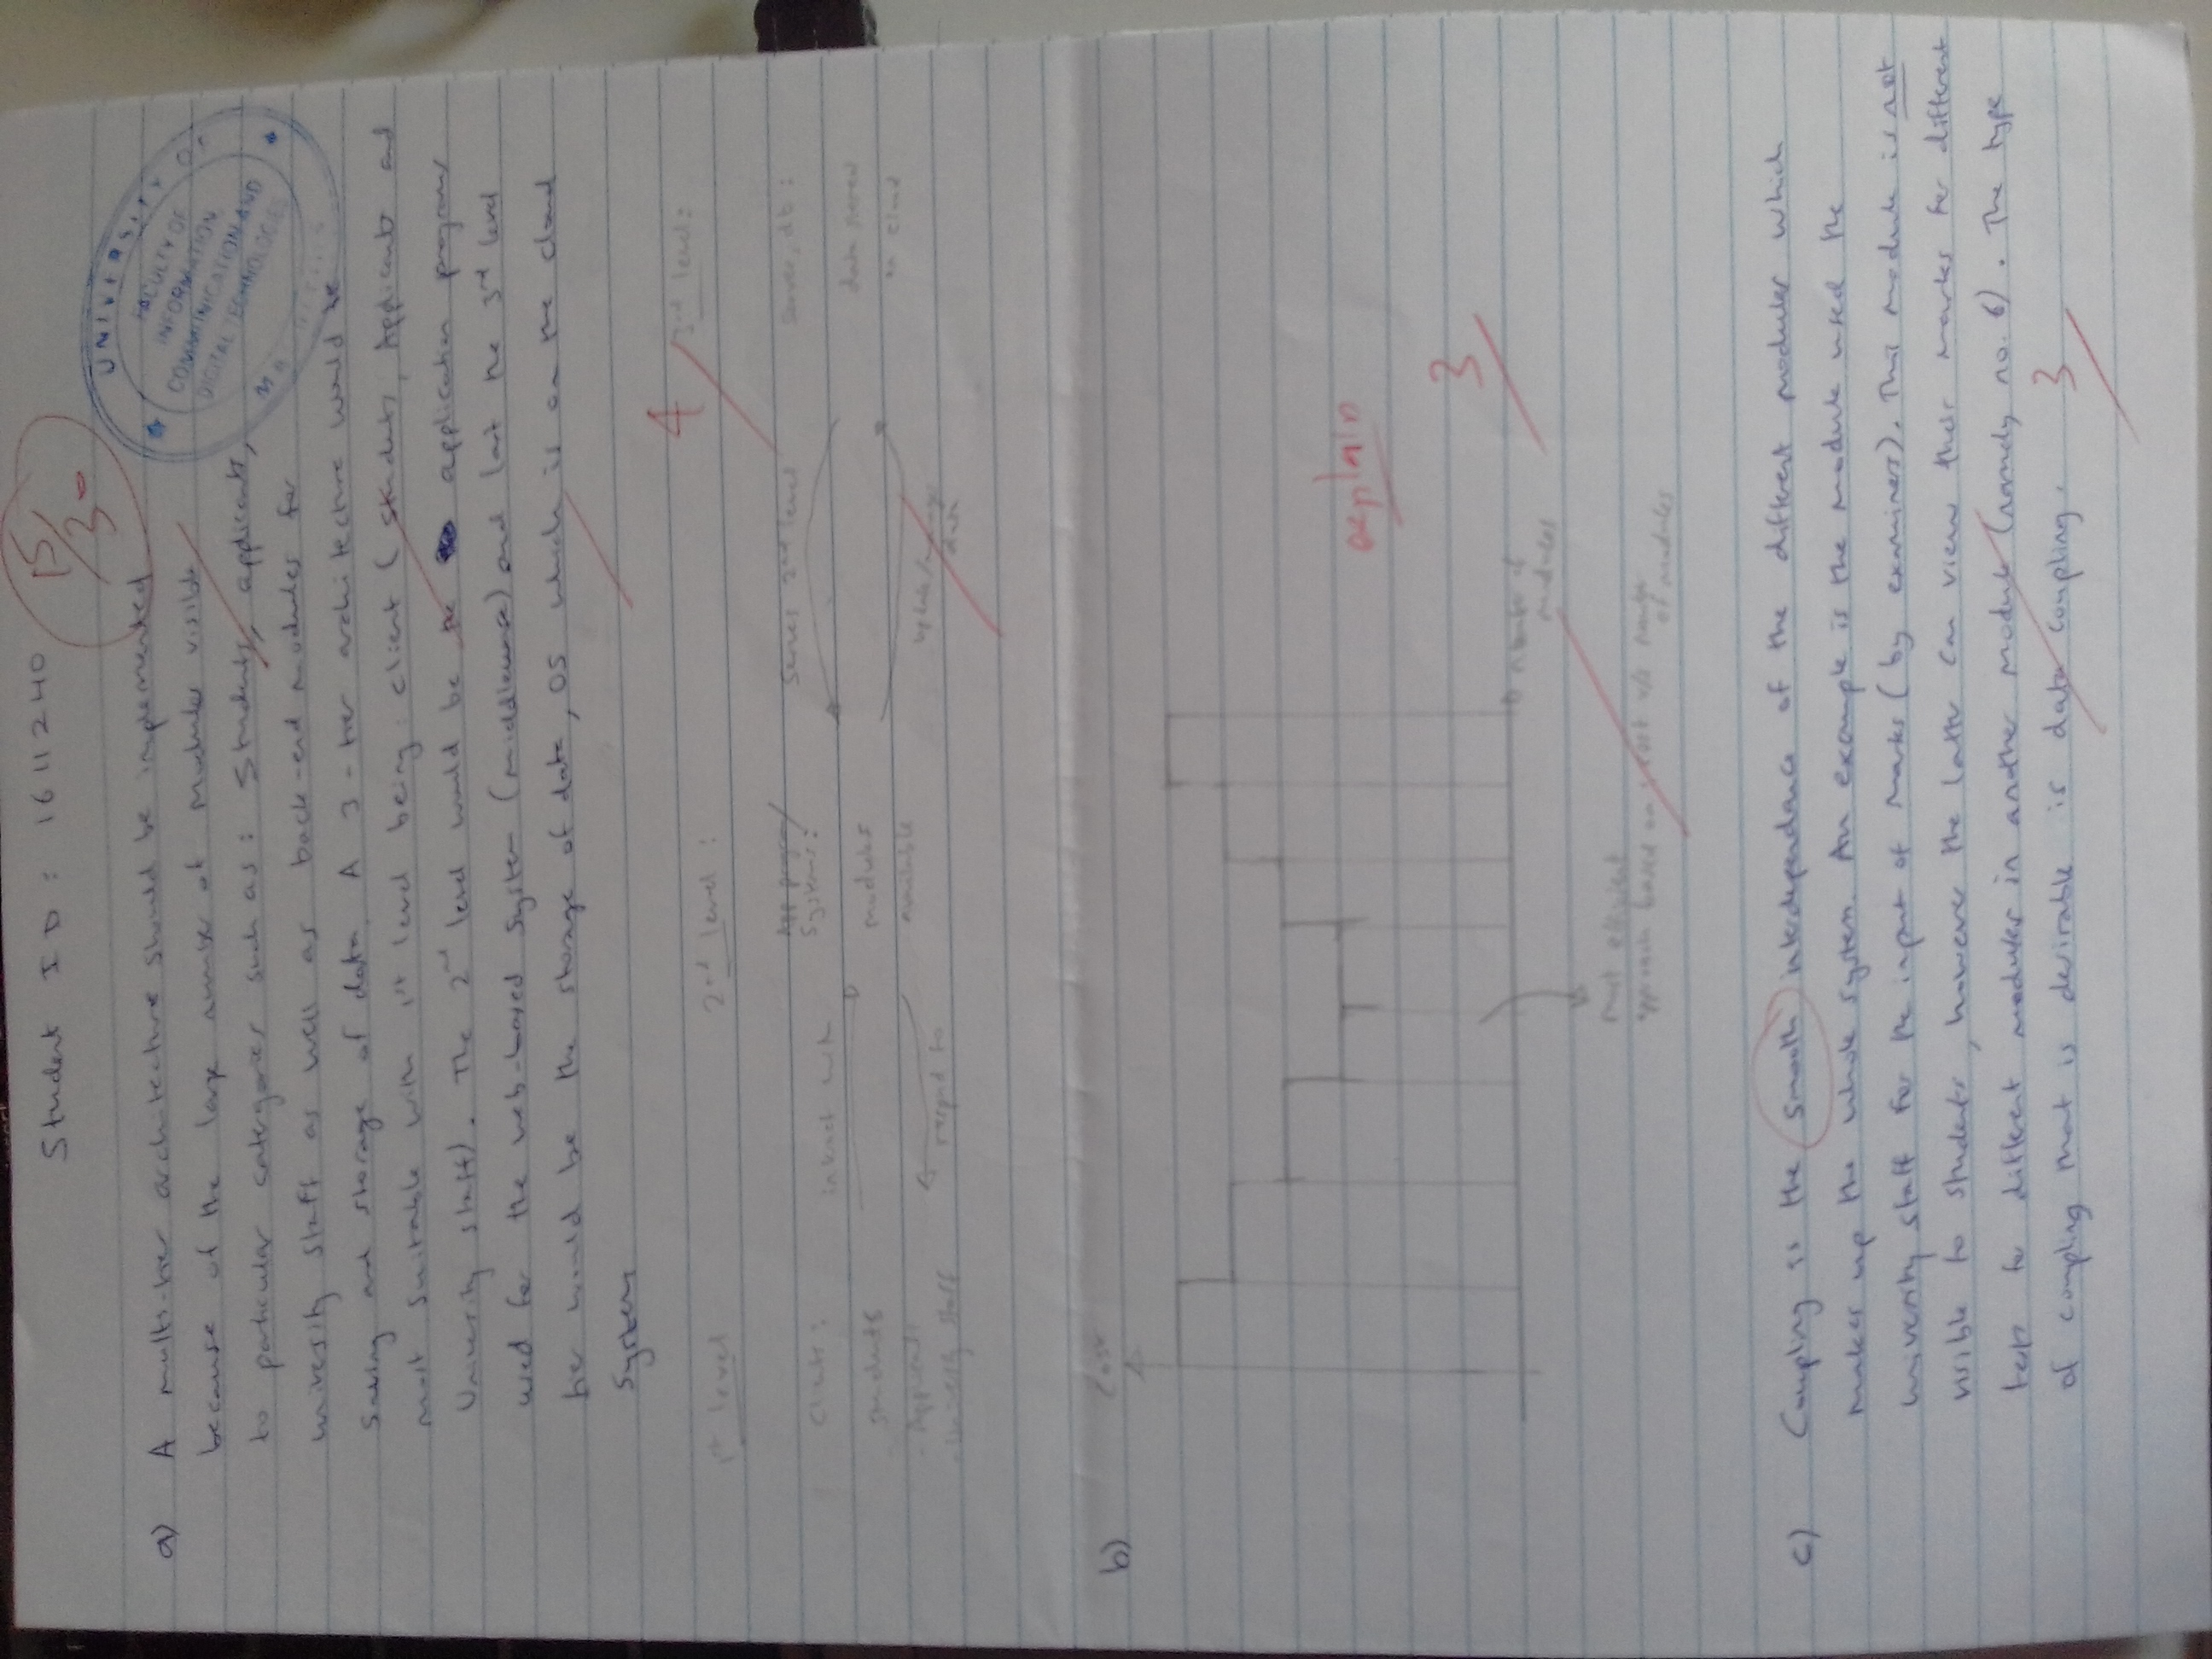 Student ID : 1611240
15/30
UNIVERSITY OF
FACULTY OF
INFORMATION
COMMUNICATION AND
DIGITAL TECHNOLOGIES
a) A multi-tier architecture should be implemented
because of the large number of modules visible
to particular catergories such as : Students, applicants,
university staff as well as back-end modules for
saving and storage of data. A 3-tier architecture would be
most suitable with 1st level being : client ( students, Applicants and
University staff). The 2nd level would be the application programs
used for the web-based system (middleware) and last the 3rd level
tier would be the storage of data, OS which is on the cloud
system
4
1st level 2nd level : 3rd level :
Clients : interact with App program/ Systems : serves 2nd level server, db :
students modules data stored
- Applicants available on cloud
- University staff respond to update/manage data
b) Cost
explain
3
number of
modules
most efficient
approach based on : cost v/s number
of modules
c) Coupling is the smooth interdependance of the different modules which
makes up the whole system. An example is the module used the
university staff for the input of marks ( by examiners). This module is not
visible to students, however the latter can view their marks for different
tests for different modules in another module (namely no. 6). The type
of coupling that is desirable is data coupling.
3